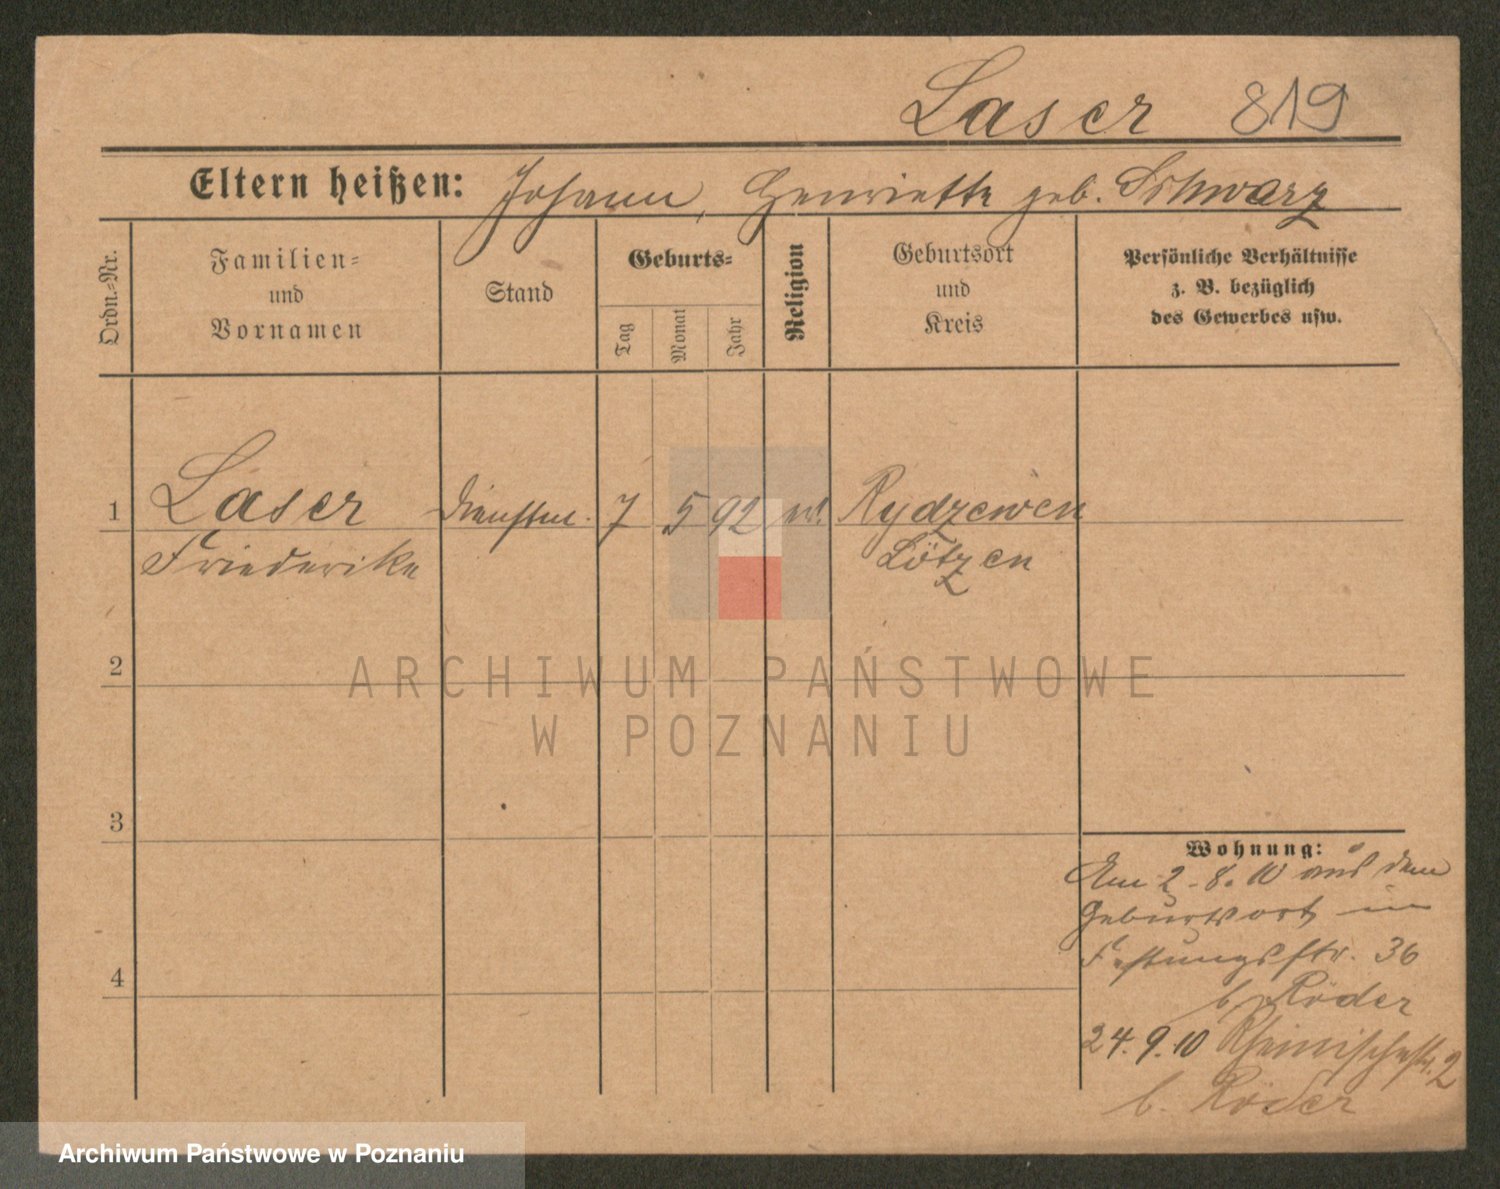 Laser 819
Eltern heißen: Johann, Henriette geb. Schwarz
Ordn.-Nr.
Familien-
und
Vornamen
Stand
Geburts-
Tag
Monat
Jahr
Religion
Geburtsort
und
Kreis
Persönliche Verhältnisse
z. B. bezüglich
des Gewerbes usw.
1 Laser Dienstm. 7 5 92 ev. Rydzewen
Friederike Lötzen
2
3
4
Wohnung:
Am 2.8.10 aus dem
Geburtsort in
Festungsstr. 36
b. Röder
24.9.10 Rheinischestr. 2
b. Röder
ARCHIWUM PAŃSTWOWE
W POZNANIU
Archiwum Państwowe w Poznaniu